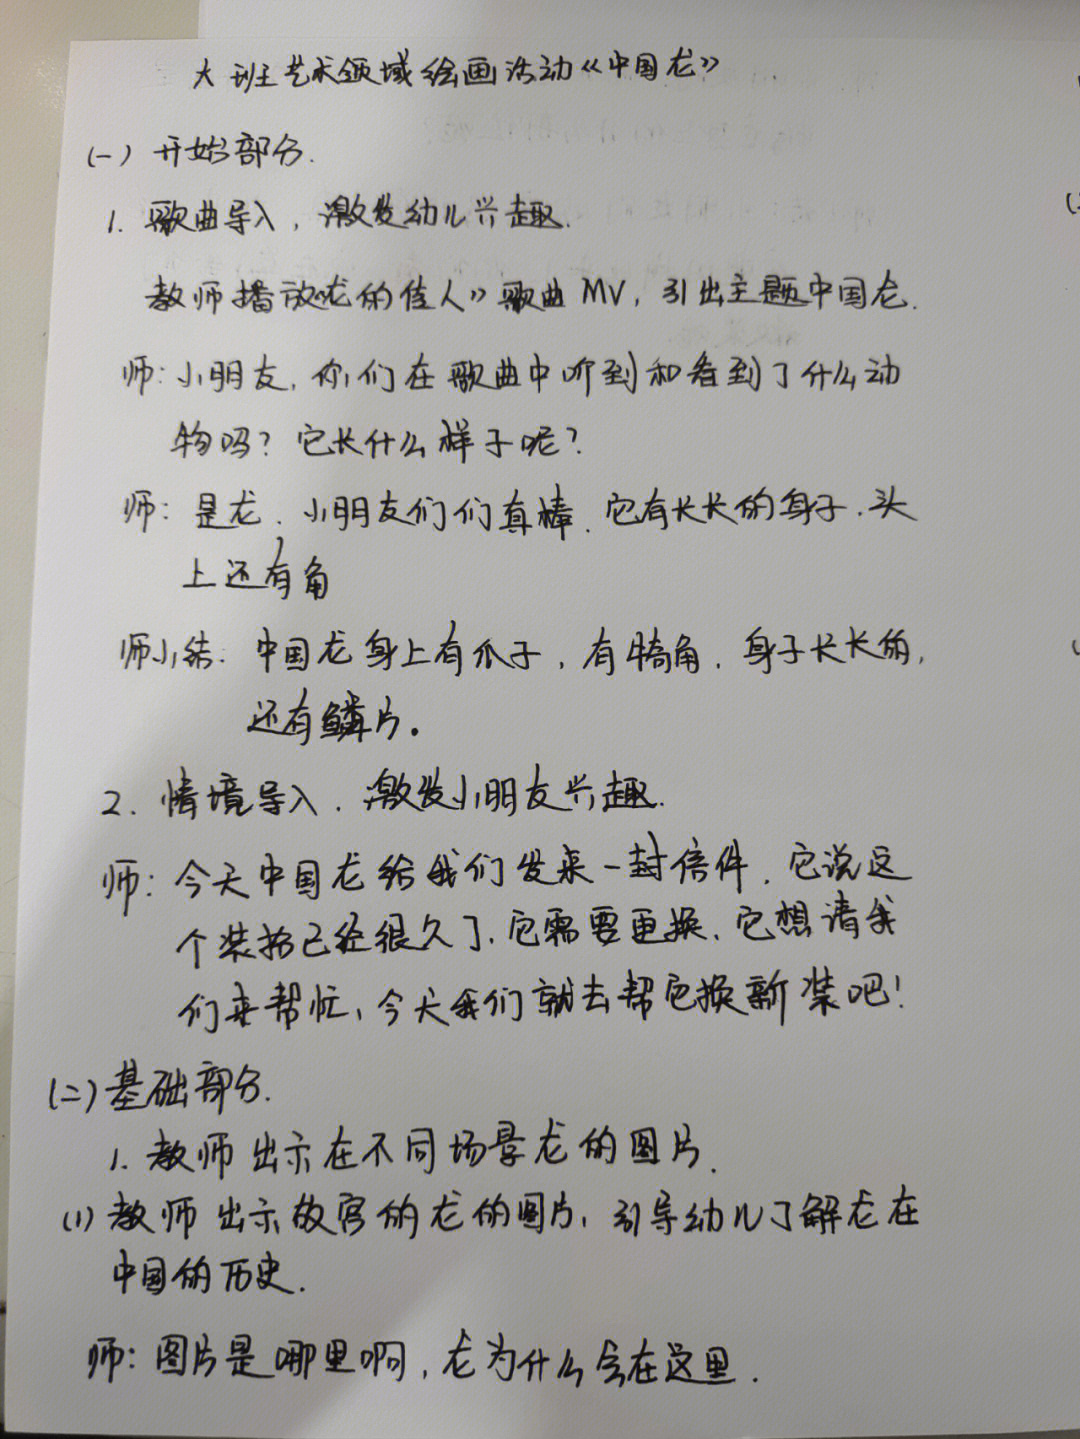 大班艺术领域绘画活动《中国龙》
(一) 开始部分.
1. 歌曲导入, 激发幼儿兴趣.
教师播放《龙的传人》歌曲MV, 引出主题中国龙.
师: 小朋友, 你们在歌曲中听到和看到了什么动
物吗? 它长什么样子呢?
师: 是龙. 小朋友们们真棒. 它有长长的身子. 头
上还有角
师小结: 中国龙身上有爪子, 有犄角. 身子长长的,
还有鳞片。
2. 情境导入. 激发小朋友兴趣.
师: 今天中国龙给我们发来一封信件. 它说这
个装扮已经很久了. 它需要更换. 它想请我
们来帮忙, 今天我们就去帮它换新装吧!
(二) 基础部分.
1. 教师出示在不同场景龙的图片.
(1) 教师出示故宫的龙的图片, 引导幼儿了解龙在
中国的历史.
师: 图片是哪里啊, 龙为什么会在这里.